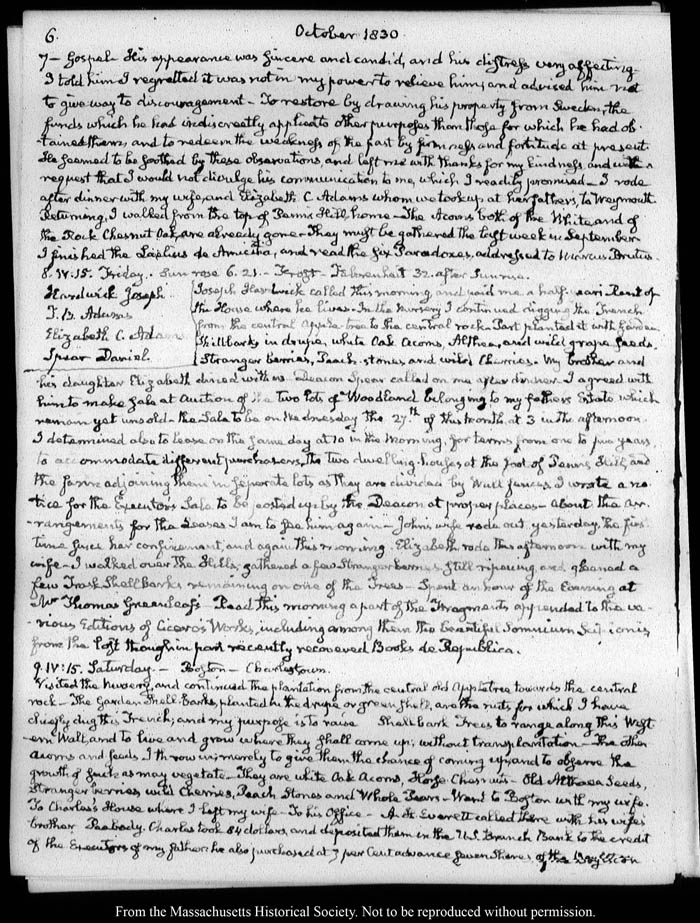 6.
October 1830.
7— Gospel. His appearance was sincere and candid, and his distress very affecting.
I told him I regretted it was not in my power to relieve him; and advised him not
to give way to discouragement— To restore by drawing his property from Sweden, the
funds which he had indiscreetly applied to other purposes than those for which he had ob-
-tained them; and to redeem the weakness of the past by firmness and fortitude at present.
He seemed to be soothed by these observations, and left me with thanks for my kindness, and with a
request that I would not divulge his communication to me, which I readily promised— I rode
after dinner with my wife, and Elizabeth C. Adams whom we took up at her father's, to Weymouth.
Returning, I walked from the top of Penns Hill, home— The Acorns both of the White, and of
the Rock Chesnut Oak, are already gone— They must be gathered the last week in September
I finished the Laelius de Amicitia, and read the six Paradoxes, addressed to Marcus Brutus.
8. IV:15. Friday. Sun rose 6.21.— Frost— Fahrenheit 32. after Sunrise.
Hardwick Joseph
T. B. Adams
Elizabeth C. Adams
Spear Daniel.
Joseph Hardwick called this morning, and paid me a half-year's Rent of
the House where he lives. In the Nursery I continued digging the Trench
from the central Apple-tree to the central rock. Part planted it with Garden
Shellbarks in drupe, white Oak Acorns, Althea, and wild grape seeds,
Stranger berries, Peach-stones and wild Cherries. My brother and
his daughter Elizabeth dined with us. Deacon Spear called on me after dinner— I agreed with
him to make sale at Auction of the two lots of Woodland belonging to my father's Estate which
remain yet unsold— the Sale to be on Wednesday the 27th of this Month, at 3 in the afternoon.
I determined also to lease on the same day at 10 in the Morning, for terms from one to five years,
to accommodate different purchasers, the two dwelling-houses at the foot of Penns Hill, and
the farm adjoining them in separate lots as they are divided by Wall fences. I wrote a no-
tice for the Executors Sale to be posted up by the Deacon at proper places— About the ar-
-rangements for the Leases I am to see him again— John's wife rode out yesterday, the first
time since her confinement, and again this morning. Elizabeth rode this afternoon with my
wife— I walked over the Hills; gathered a few Stranger berries still ripening, and gleaned a
few Trask Shellbarks remaining on one of the Trees— Spent an hour of the Evening at
Mr Thomas Greenleaf's— Read this morning a part of the Fragments appended to the va-
rious Editions of Cicero's Works, including among them the beautiful Somnium Scipionis,
from the lost though in part recently recovered Books de Republica.
9. IV:15. Saturday.— Boston— Charlestown.
Visited the Nursery, and continued the plantation from the central old Appletree towards the central
rock— The Garden Shell-Barks, planted in the drupe or green shell, are the nuts, for which I have
chiefly dug this Trench; and my purpose is to raise Shellbark Trees to range along this West-
ern Wall, and to live and grow where they shall come up; without transplantation— The other
acorns and seeds I throw in; merely to give them the chance of coming up, and to observe the
growth of such as may vegetate— They are white Oak Acorns, Horse Chesnuts— Old Althaea Seeds,
Stranger berries, wild Cherries, Peach Stones and Whole Pears— Went to Boston with my wife.
To Charles's House where I left my wife— To his Office— A. H. Everett called there with his wife's
brother Peabody. Charles took 84 dollars, and deposited them in the U.S. Branch Bank to the credit
of the Executors of my father: he also purchased at 7 per Cent advance seven Shares of the
From the Massachusetts Historical Society. Not to be reproduced without permission.